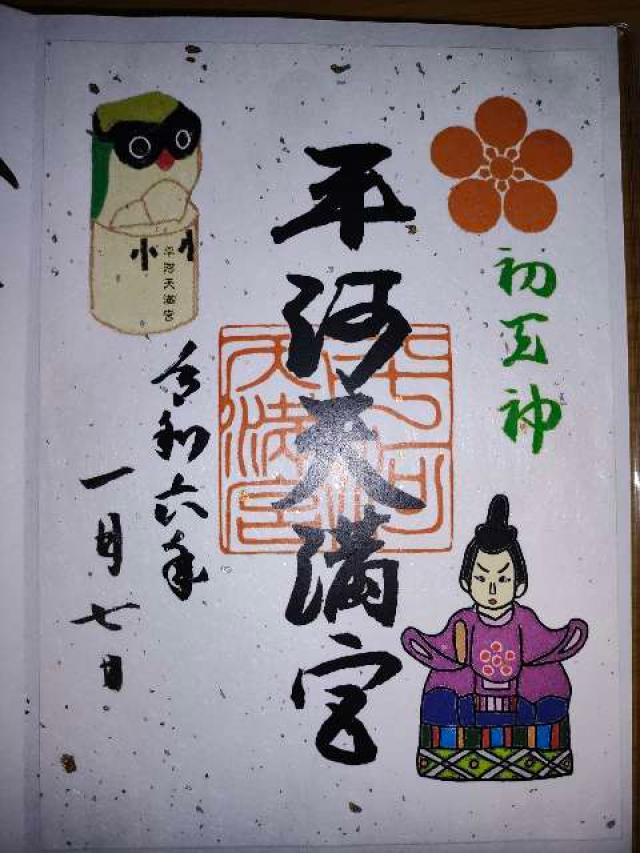 初天神
平河天満宮
平河天満宮
小
平河天満宮
令和六年
一月七日